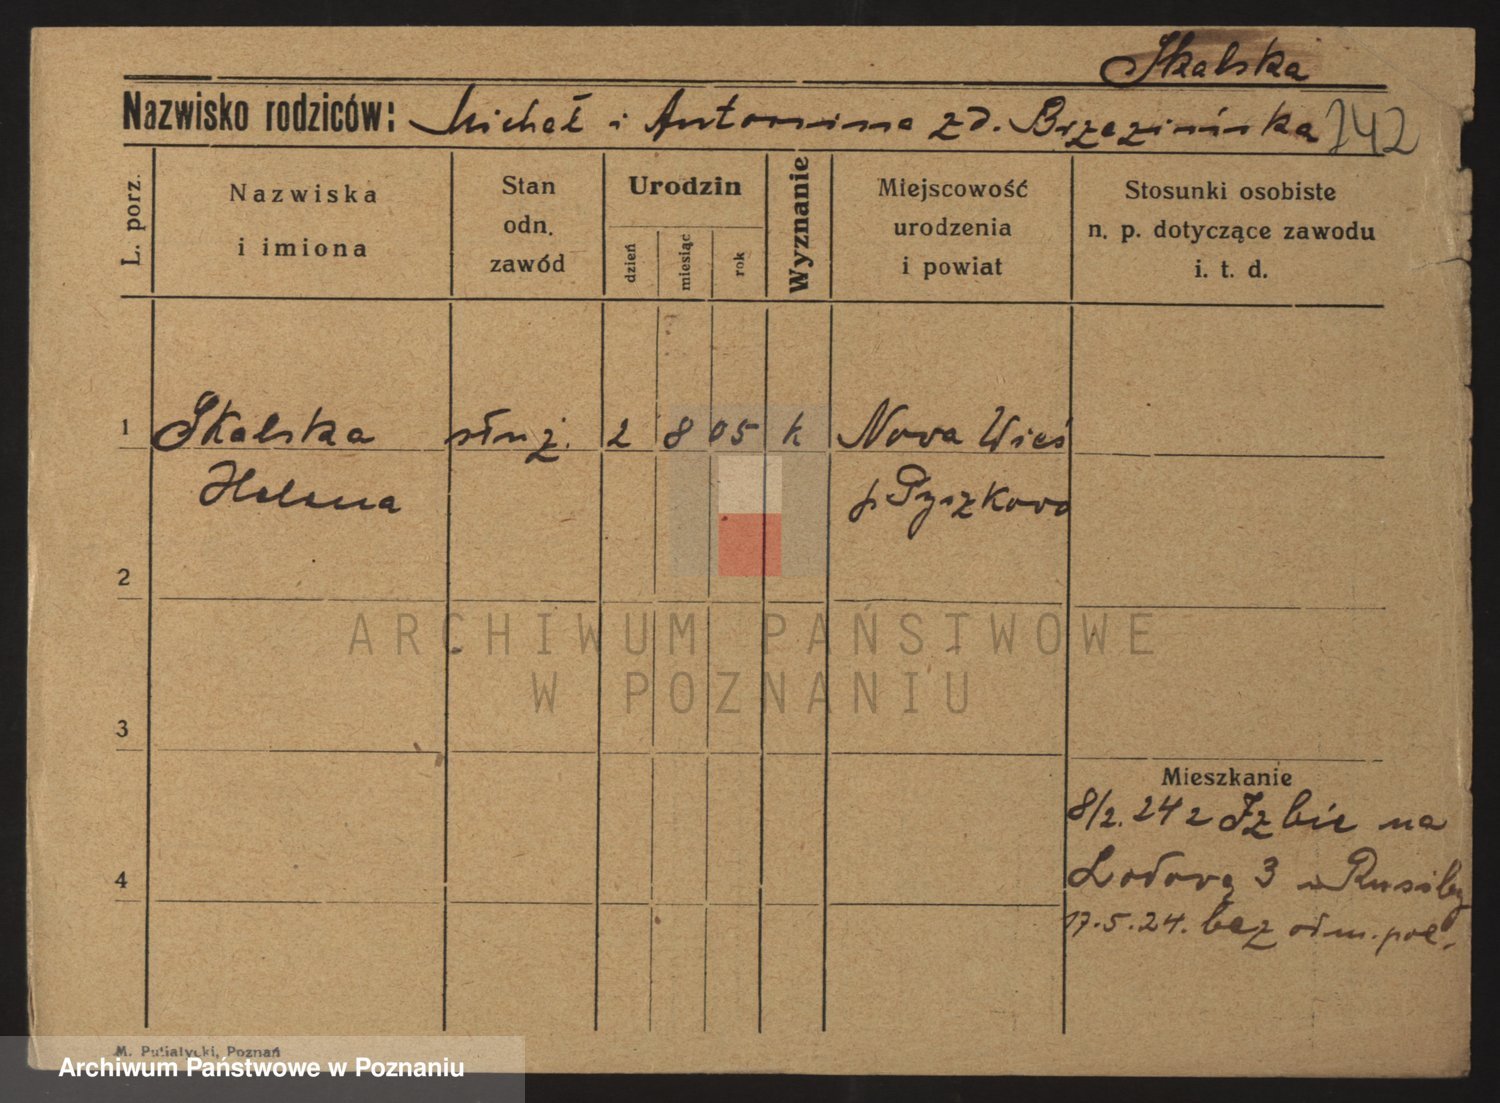 Skalska
Nazwisko rodziców: Michał i Antonina zd. Brzezińska 242
L. porz.
Nazwiska
i imiona
Stan
odn.
zawód
Urodzin
dzień
miesiąc
rok
Wyznanie
Miejscowość
urodzenia
i powiat
Stosunki osobiste
n. p. dotyczące zawodu
i. t. d.
1 Skalska służ. 2 8 05 k Nova Wieś
Helena p. Pyzkovo
2
3
4
Mieszkanie
8/2. 24 z Izbic na
Lodovą 3
17.5.24. bez odm. pol.
M. Putiatycki, Poznań
ARCHIWUM PAŃSTWOWE
W POZNANIU
Archiwum Państwowe w Poznaniu